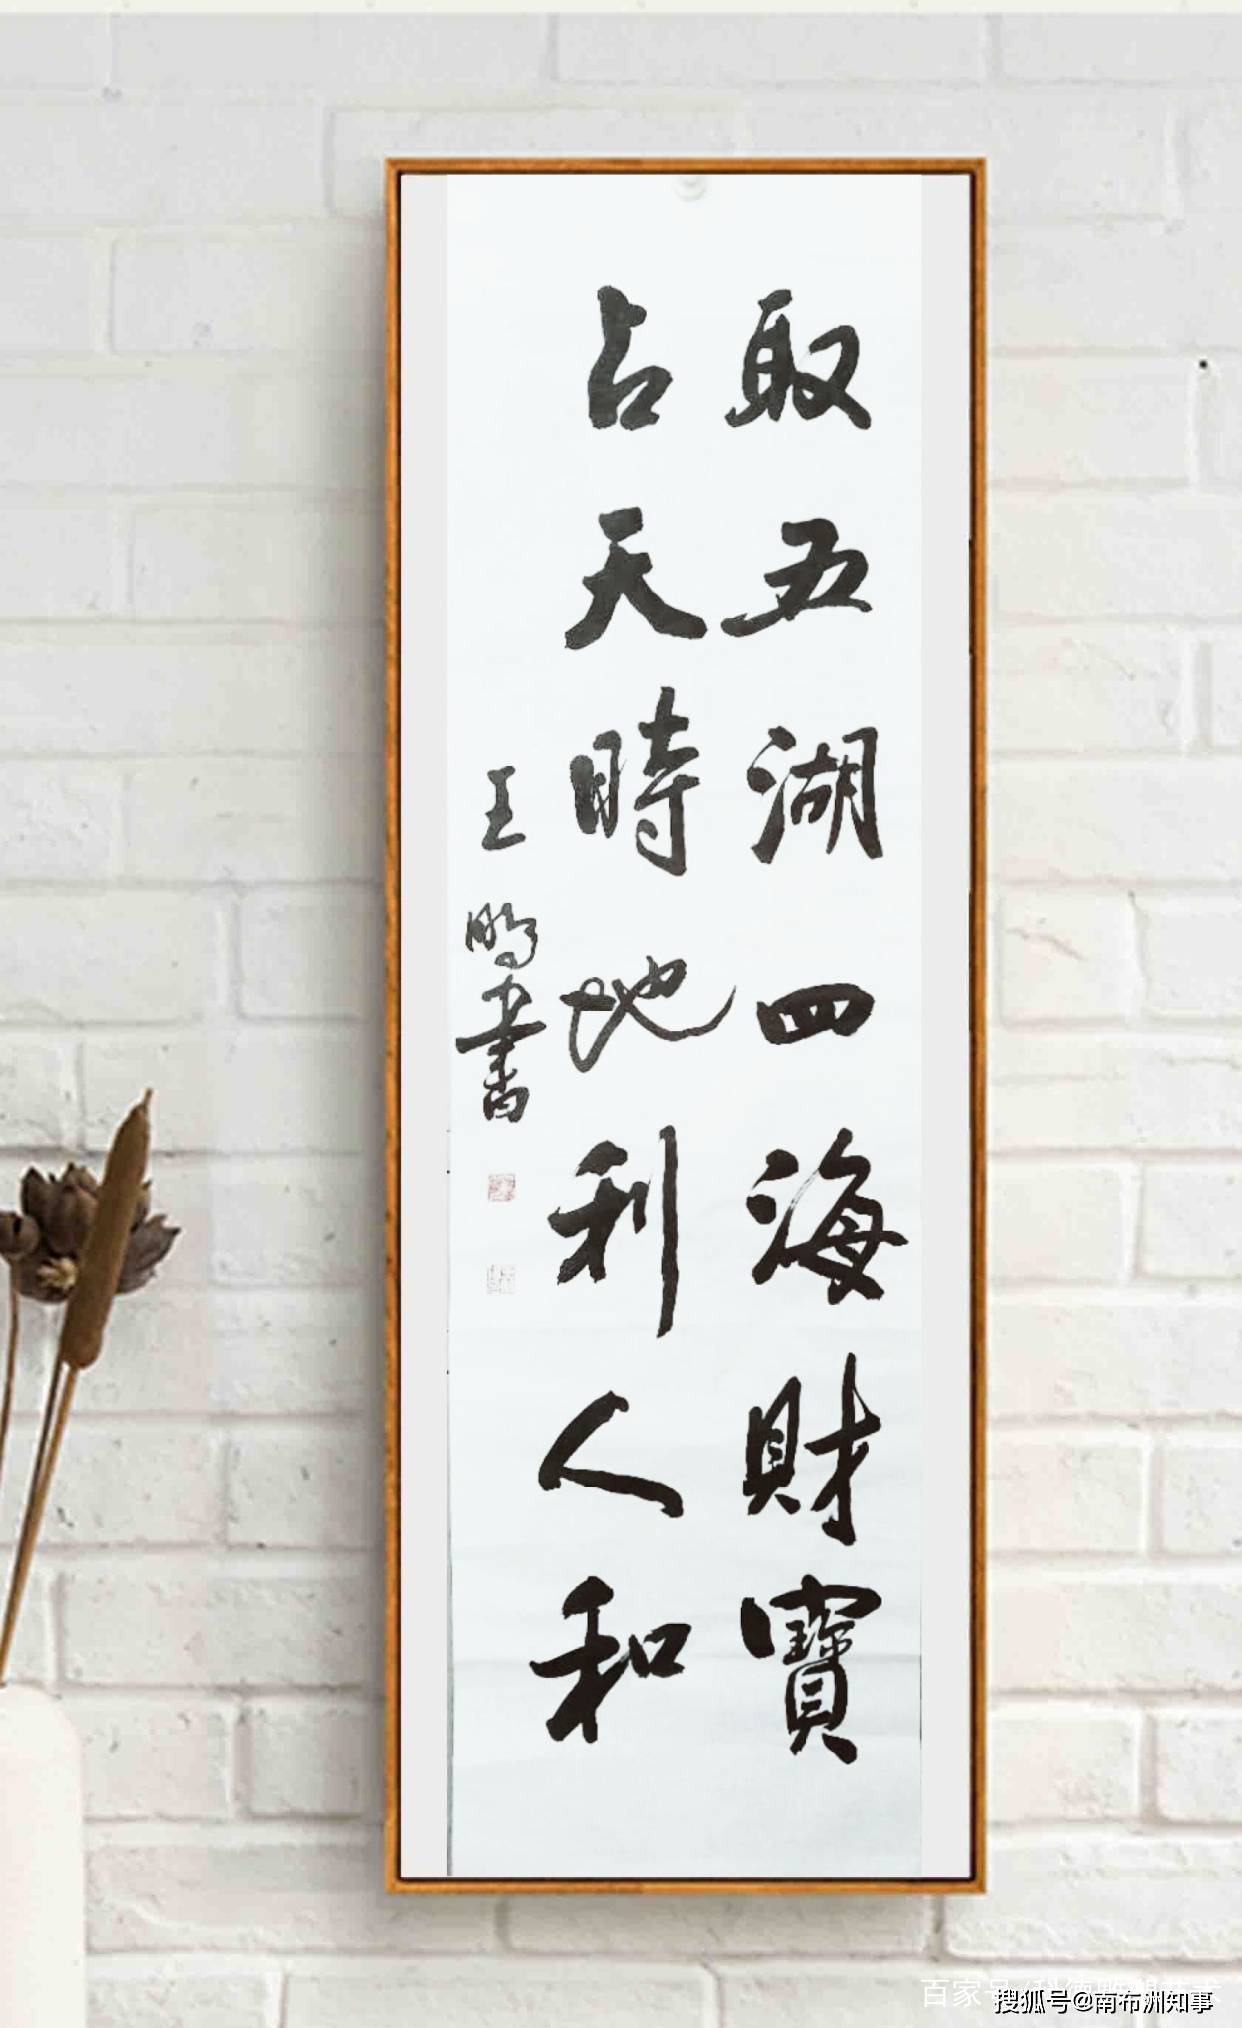 取五湖四海財寶
占天時地利人和
王鵬書
搜狐号@南布洲知事